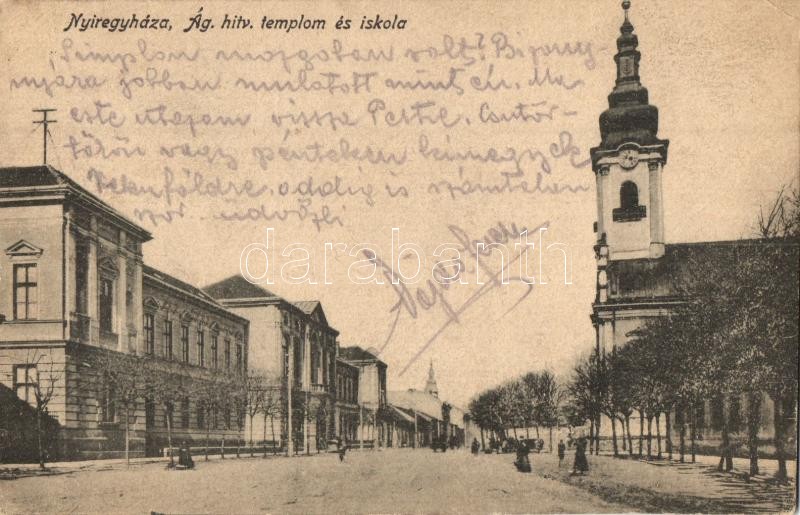 Nyiregyháza, Ág. hitv. templom és iskola
Simplon mozgoban volt? Bizony
nyára jobban mulatott mint én. Ma
este utazom vissza Pestre. Csütör-
tökön vagy pénteken kimegyek
addig is számtalan
szor üdvözli
darabanth